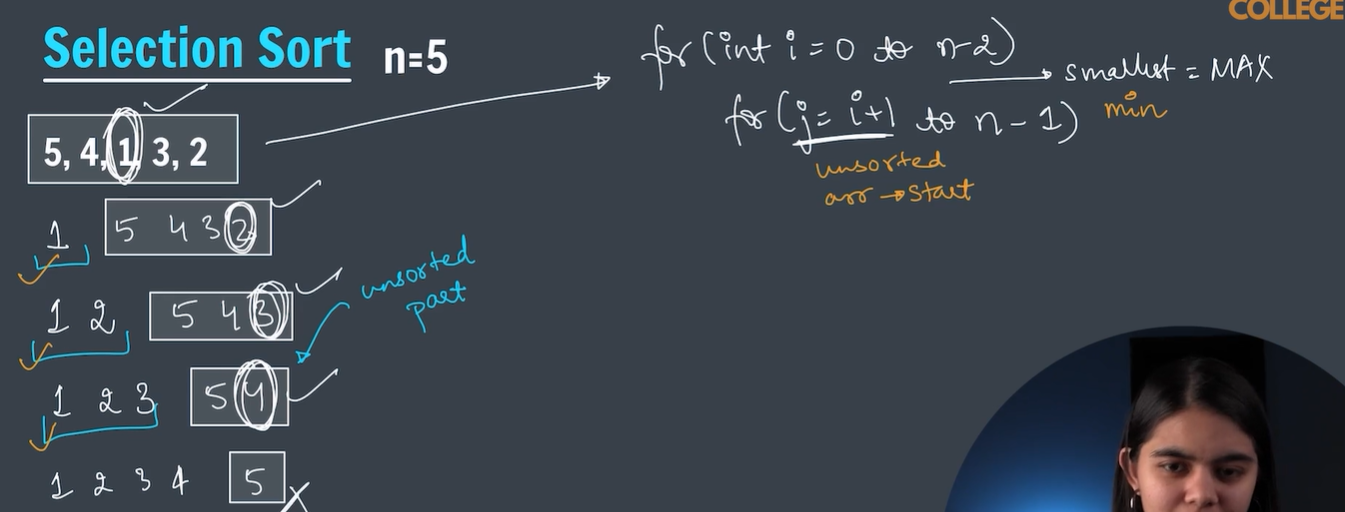 COLLEGE
Selection Sort n=5
5, 4, 1, 3, 2
1 5 4 3 2
1 2 5 4 3
unsorted
part
1 2 3 5 4
1 2 3 4 5 x
for (int i = 0 to n-2)
→ smallest = MAX
min
for (j = i+1 to n-1)
unsorted
arr → start